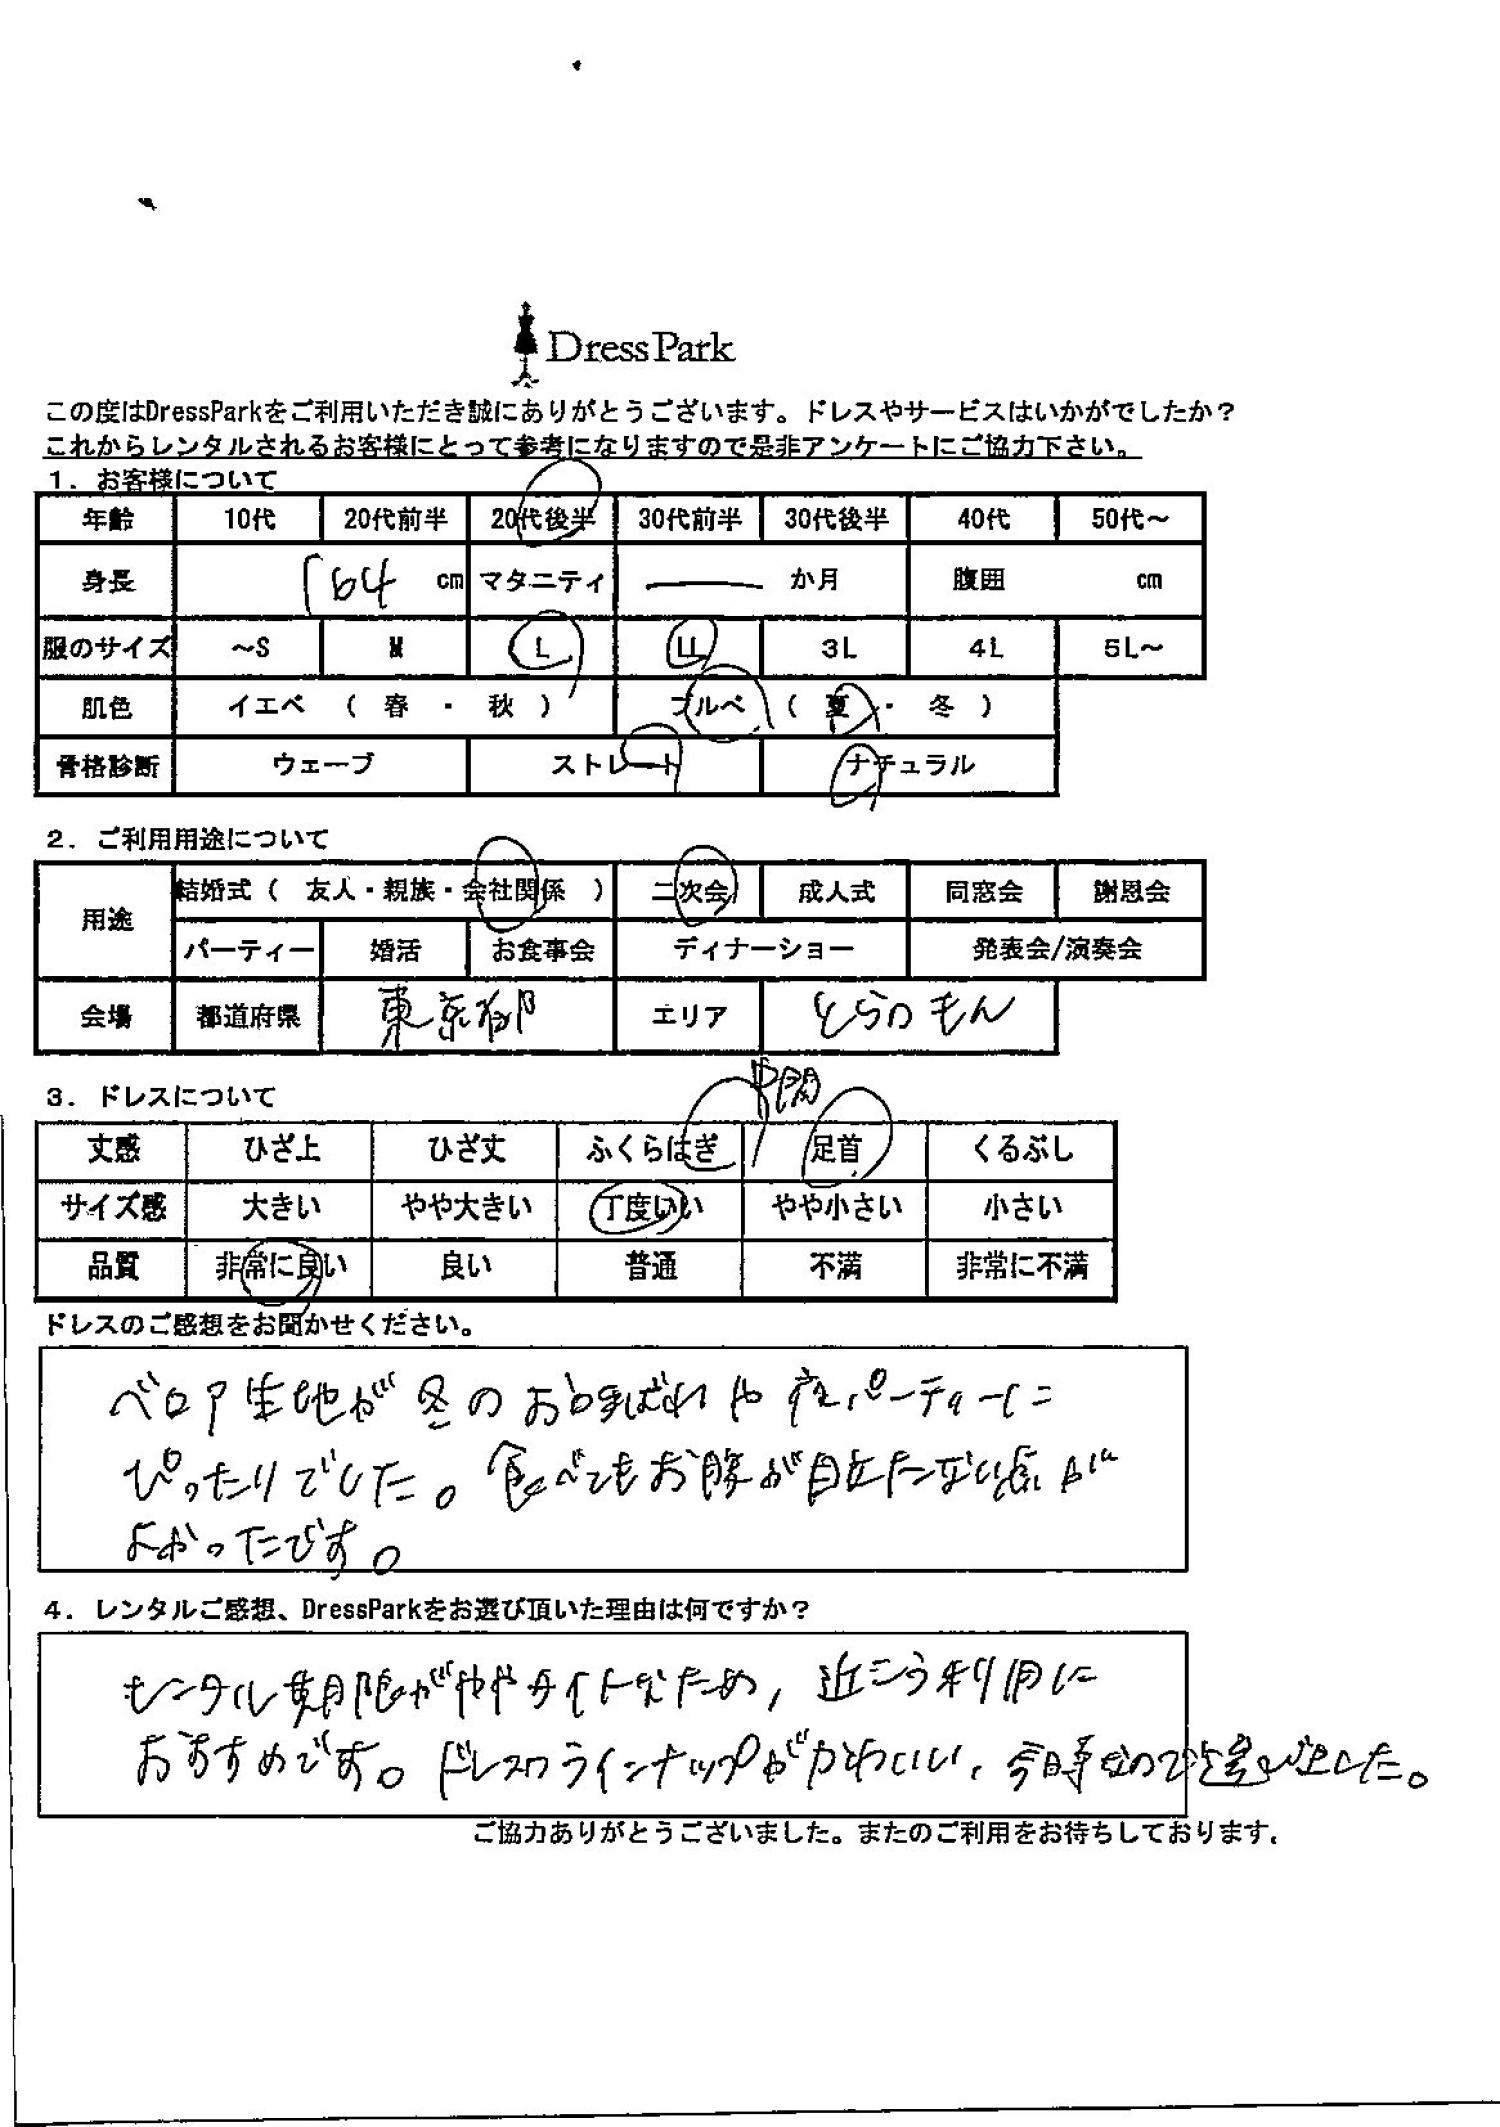 DressPark
この度はDressParkをご利用いただき誠にありがとうございます。ドレスやサービスはいかがでしたか？
これからレンタルされるお客様にとって参考になりますので是非アンケートにご協力下さい。
1. お客様について
年齢 10代 20代前半 20代後半 30代前半 30代後半 40代 50代～
身長 164 cm マタニティ か月 腹囲 cm
服のサイズ ～S M L LL 3L 4L 5L～
肌色 イエベ （ 春 ・ 秋 ） ブルベ （ 夏 ・ 冬 ）
骨格診断 ウェーブ ストレート ナチュラル
2. ご利用用途について
用途 結婚式（ 友人・親族・会社関係 ） 二次会 成人式 同窓会 謝恩会
パーティー 婚活 お食事会 ディナーショー 発表会/演奏会
会場 都道府県 東京都 エリア とらのもん
3. ドレスについて
中間
丈感 ひざ上 ひざ丈 ふくらはぎ 足首 くるぶし
サイズ感 大きい やや大きい 丁度いい やや小さい 小さい
品質 非常に良い 良い 普通 不満 非常に不満
ドレスのご感想をお聞かせください。
ベロア生地が冬のお呼ばれや パーティーに
ぴったりでした。食べてもお腹が目立たない点が
よかったです。
4. レンタルご感想、DressParkをお選び頂いた理由は何ですか？
レンタル期限がややタイトなため、近こう利用に
おすすめです。ドレスのラインナップがかわいい、 なので選びました。
ご協力ありがとうございました。またのご利用をお待ちしております。